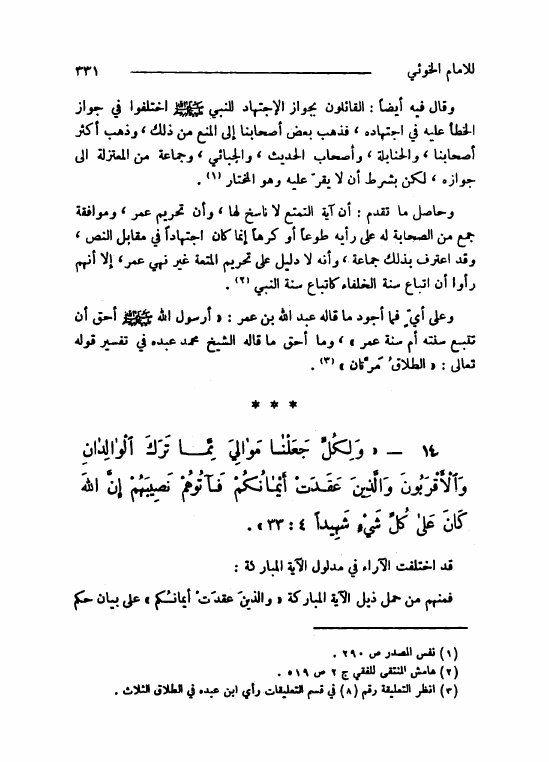 للامام الخوئي ٣٣١
وقال فيه أيضاً : القائلون بجواز الإجتهاد للنبي ﷺ اختلفوا في جواز
الخطأ عليه في اجتهاده ، فذهب بعض أصحابنا إلى المنع من ذلك ، وذهب أكثر
أصحابنا ، والحنابلة ، وأصحاب الحديث ، والجبائي ، وجماعة من المعتزلة الى
جوازه ، لكن بشرط أن لا يقرّ عليه وهو المختار (١) .
وحاصل ما تقدم : أن آية التمتع لا ناسخ لها ، وأن تحريم عمر ، وموافقة
جمع من الصحابة له على رأيه طوعاً أو كرهاً إنما كان اجتهاداً في مقابل النص ،
وقد اعترف بذلك جماعة ، وأنه لا دليل على تحريم المتعة غير نهي عمر، إلا أنهم
رأوا أن اتباع سنة الخلفاء كاتباع سنة النبي (٢) .
وعلى أيّ فما أجود ما قاله عبد الله بن عمر : « أرسول الله ﷺ أحق أن
تتبع سنته أم سنة عمر » ، وما أحق ما قاله الشيخ محمد عبده في تفسير قوله
تعالى : « الطلاقُ مَرَّتان » (٣) .
* * *
١٤ – « وَلِكُلٍّ جَعَلْنَا مَوَالِيَ مِمَّا تَرَكَ الْوَالِدَانِ
وَالْأَقْرَبُونَ وَالَّذِينَ عَقَدَتْ أَيْمَانُكُمْ فَآتُوهُمْ نَصِيبَهُمْ إِنَّ اللهَ
كَانَ عَلَىٰ كُلِّ شَيْءٍ شَهِيداً ٤ : ٣٣» .
قد اختلفت الآراء في مدلول الآية المباركة :
فمنهم من حمل ذيل الآية المباركة « والذينَ عقدَتْ أيمانُكم » على بيان حكم
(١) نفس المصدر ص ٢٩٠ .
(٢) هامش المنتقى للفقي ج ٢ ص ٥١٩ .
(٣) انظر التعليقة رقم (٨) في قسم التعليقات رأي ابن عبده في الطلاق الثلاث .